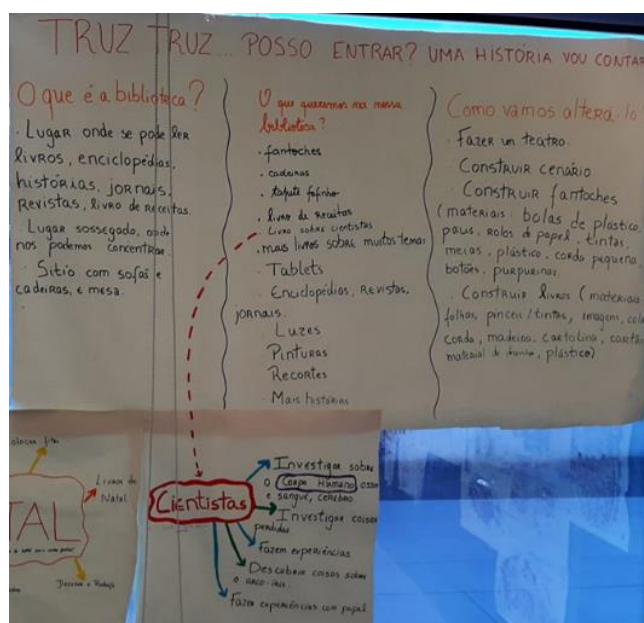 TRUZ TRUZ... POSSO ENTRAR? UMA HISTÓRIA VOU CONTAR
O que é a biblioteca?
. Lugar onde se pode ler
livros, enciclopédias,
histórias, jornais,
revistas, livro de receitas.
. Lugar sossegado, onde
nos podemos concentrar.
. Sitio com sofás e
cadeiras, e mesa.
O que queremos na nossa
biblioteca?
. fantoches
. cadeiras
. tapete fofinho
. livro de receitas
. Livro sobre cientistas
. mais livros sobre muitos temas
. Tablets
. Enciclopédias, Revistas,
jornais.
. Luzes
. Pinturas
. Recortes
. Mais histórias
Como vamos alterá-lo
. Fazer um teatro.
. Construir cenário
. Construir fantoches
(materiais: bolas de plástico,
paus, rolos de papel, tintas,
meias, plástico, corda pequena,
botões, purpurinas.
. Construir livros (materiais
folhas, pincéis/tintas, imagens, cola
corda, madeira, cartolina, cartão
material de, plástico)
Livros de
Natal
TAL
Cientistas
Investigar sobre
o Corpo Humano osso
e sangue, cérebro
Investigar coisas
perdidas
Fazem experiências
Descobrir coisas sobre
o arco-íris.
Fazer experiências com papel